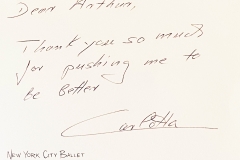 Dear Arthur,
Thank you so much
for pushing me to
be better
Carlotta
NEW YORK CITY BALLET